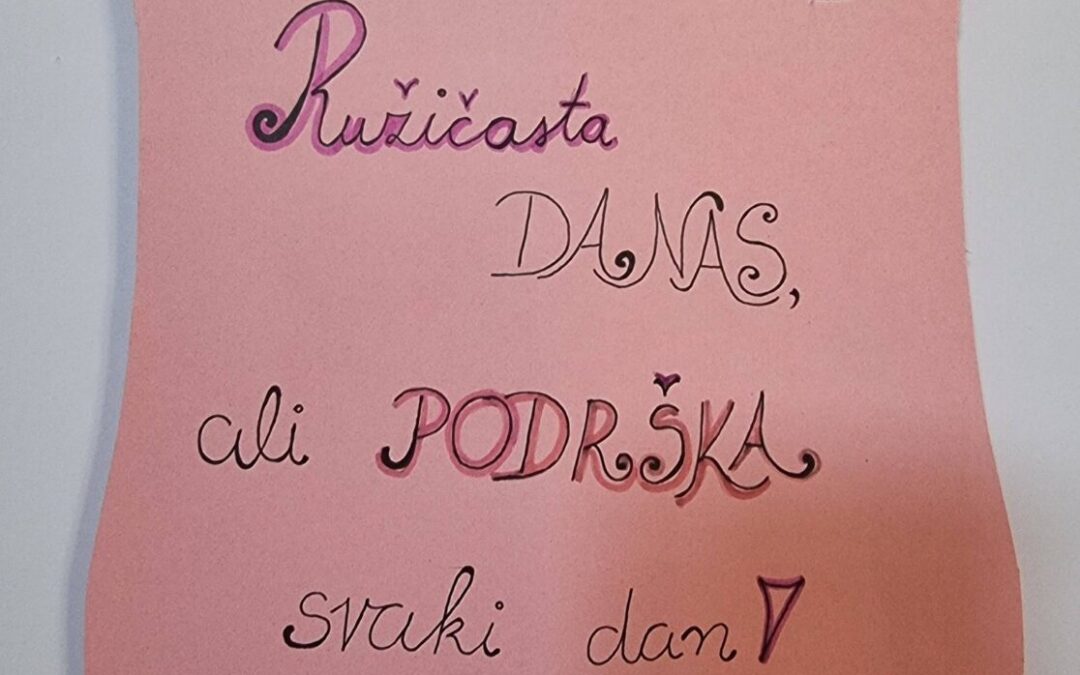 Ružičasta
DANAS,
ali PODRŠKA
svaki dan!